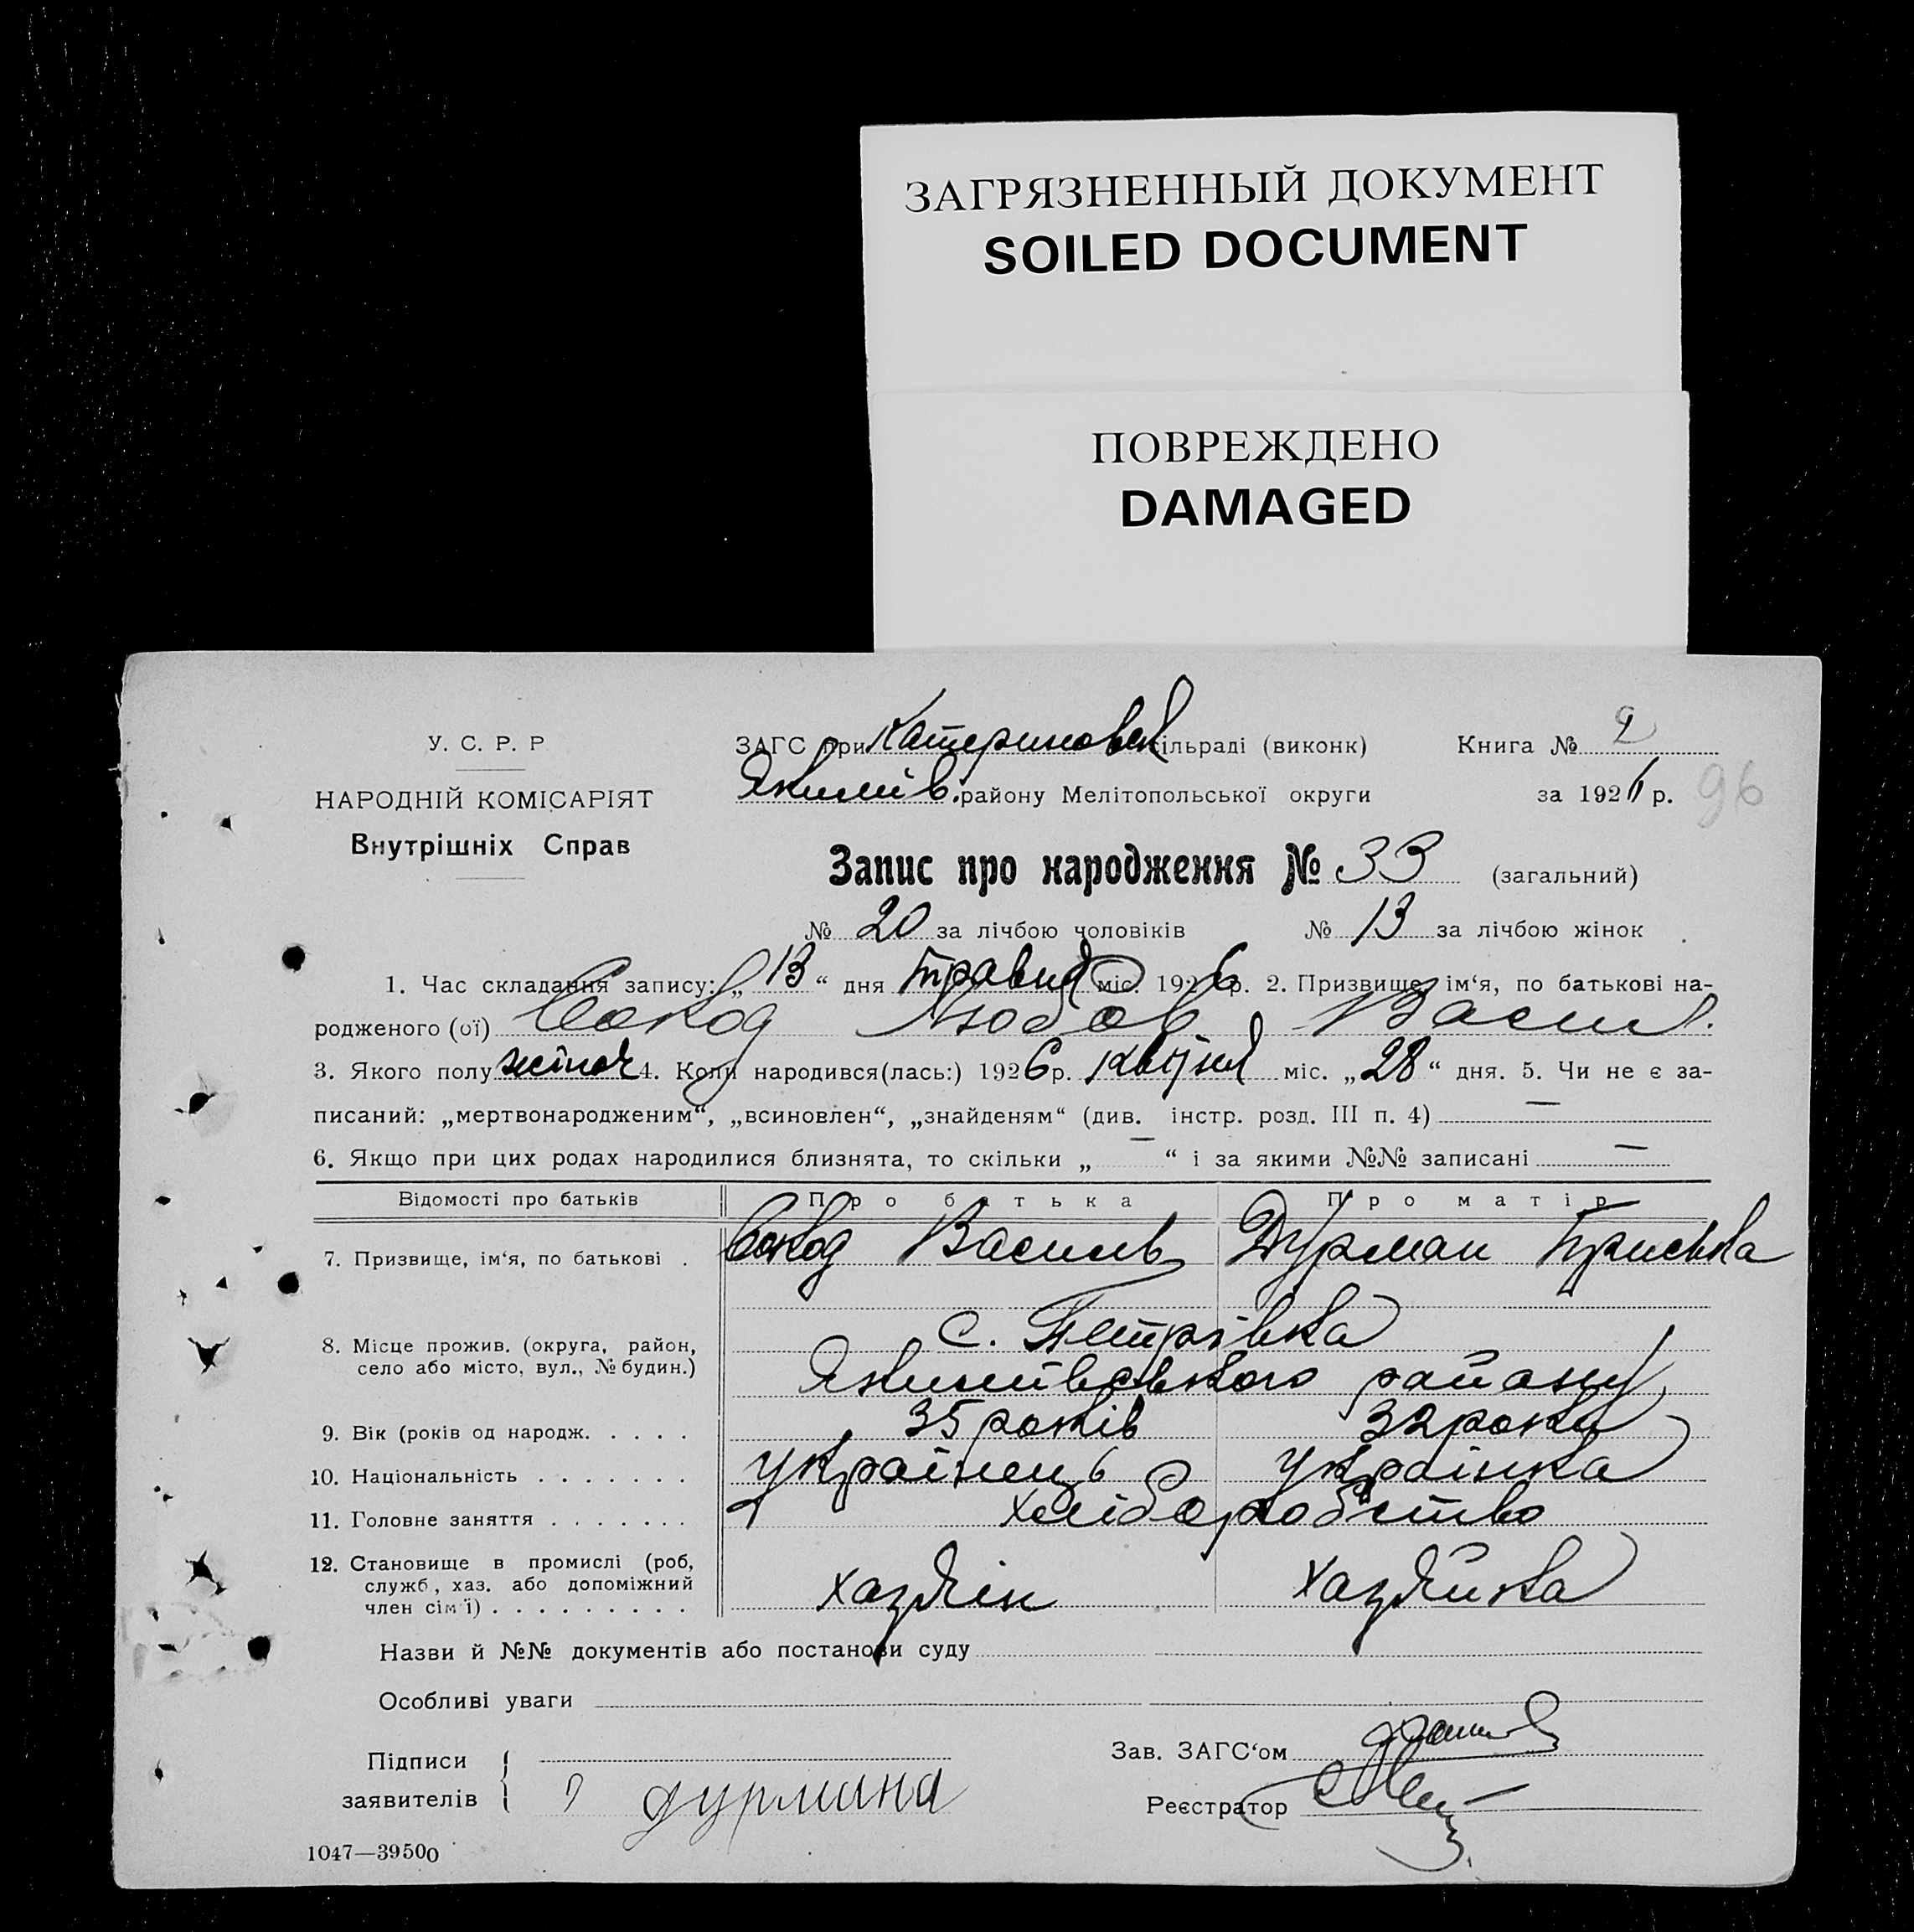 ЗАГРЯЗНЕННЫЙ ДОКУМЕНТ
SOILED DOCUMENT
ПОВРЕЖДЕНО
DAMAGED
У. С. Р. Р
НАРОДНІЙ КОМІСАРІЯТ
Внутрішніх Справ
ЗАГС при Катериновск сільраді (виконк) Книга № 2
Якимів. району Мелітопольської округи за 1926 р. 96
Запис про народження № 33 (загальний)
№ 20 за лічбою чоловіків № 13 за лічбою жінок
1. Час складання запису: „ 13 “ дня травня міс. 1926 р. 2. Призвище, ім‘я, по батькові на-
родженого (ої) Сокод Любов Васил.
3. Якого полу жіноч 4. Коли народився(лась:) 1926 р. квітня міс. „ 28 “ дня. 5. Чи не є за-
писаний: „мертвонародженим“, „всиновлен“, „знайденям“ (див. інстр. розд. III п. 4) —
6. Якщо при цих родах народилися близнята, то скільки „ — “ і за якими №№ записані —
Відомості про батьків Про батька Про матір
7. Призвище, ім‘я, по батькові . Сокод Василь Дурман Приська
8. Місце прожив. (округа, район, с. Петрівка
село або місто, вул., № будин.) Якимівського району
9. Вік (років од народж. . . . . 35 років 32 роки
10. Національність . . . . . . . Українець Українка
11. Головне заняття . . . . . . . хліборобство
12. Становище в промислі (роб,
служб, хаз. або допоміжний
член сім‘ї) . . . . . . . . . хазяїн хазяйка
Назви й №№ документів або постанови суду
Особливі уваги
Підписи
заявителів дурмана
Зав. ЗАГС‘ом
Реєстратор
1047—39500